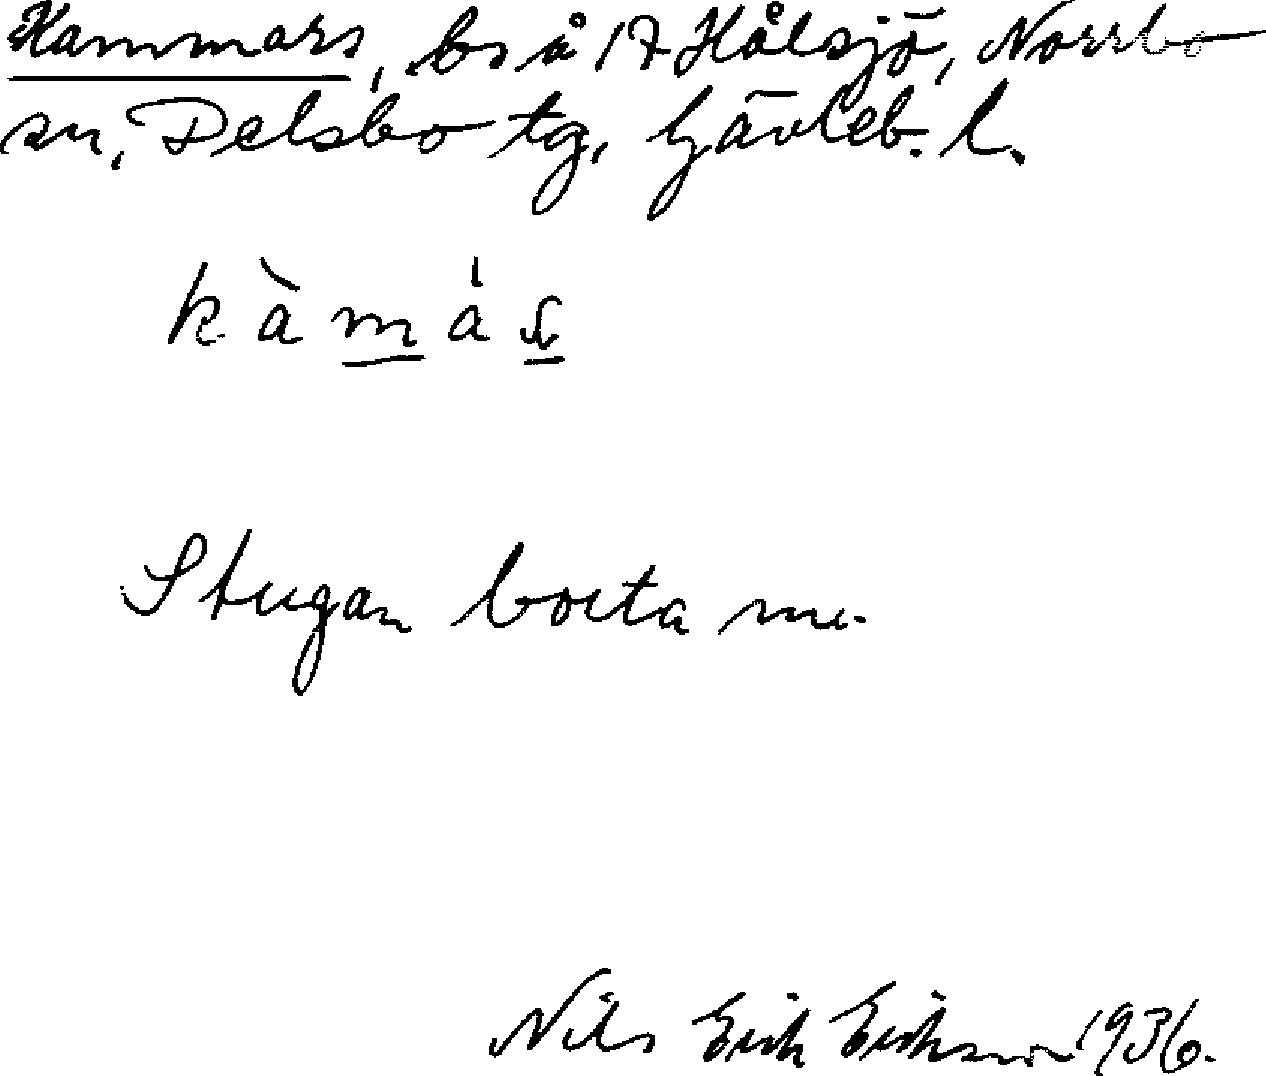 Kammars, bs å 17 Hålsjö, Norrbo
sn, Delsbo tg, Gävleb. l.
kàmás
Stugan borta nu.
Nils Erik Erikson 1936.